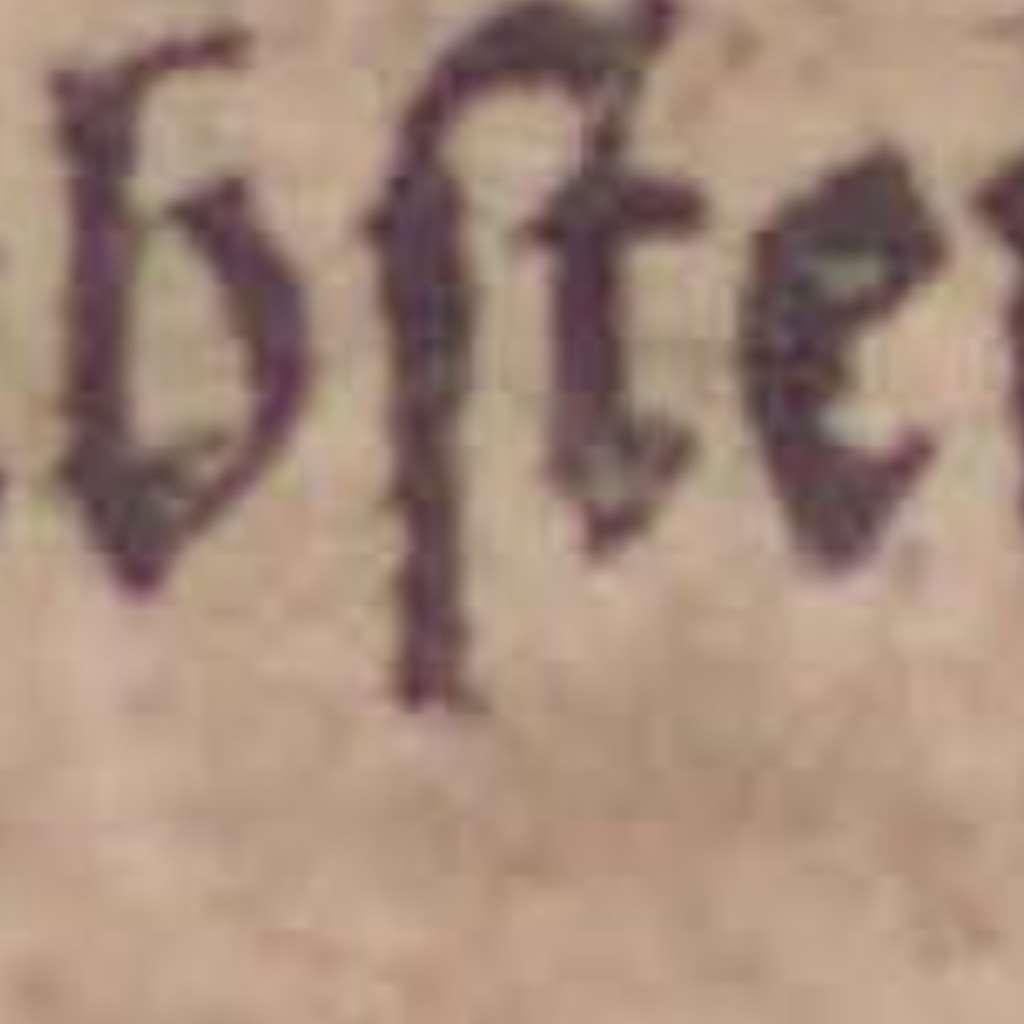 bſte